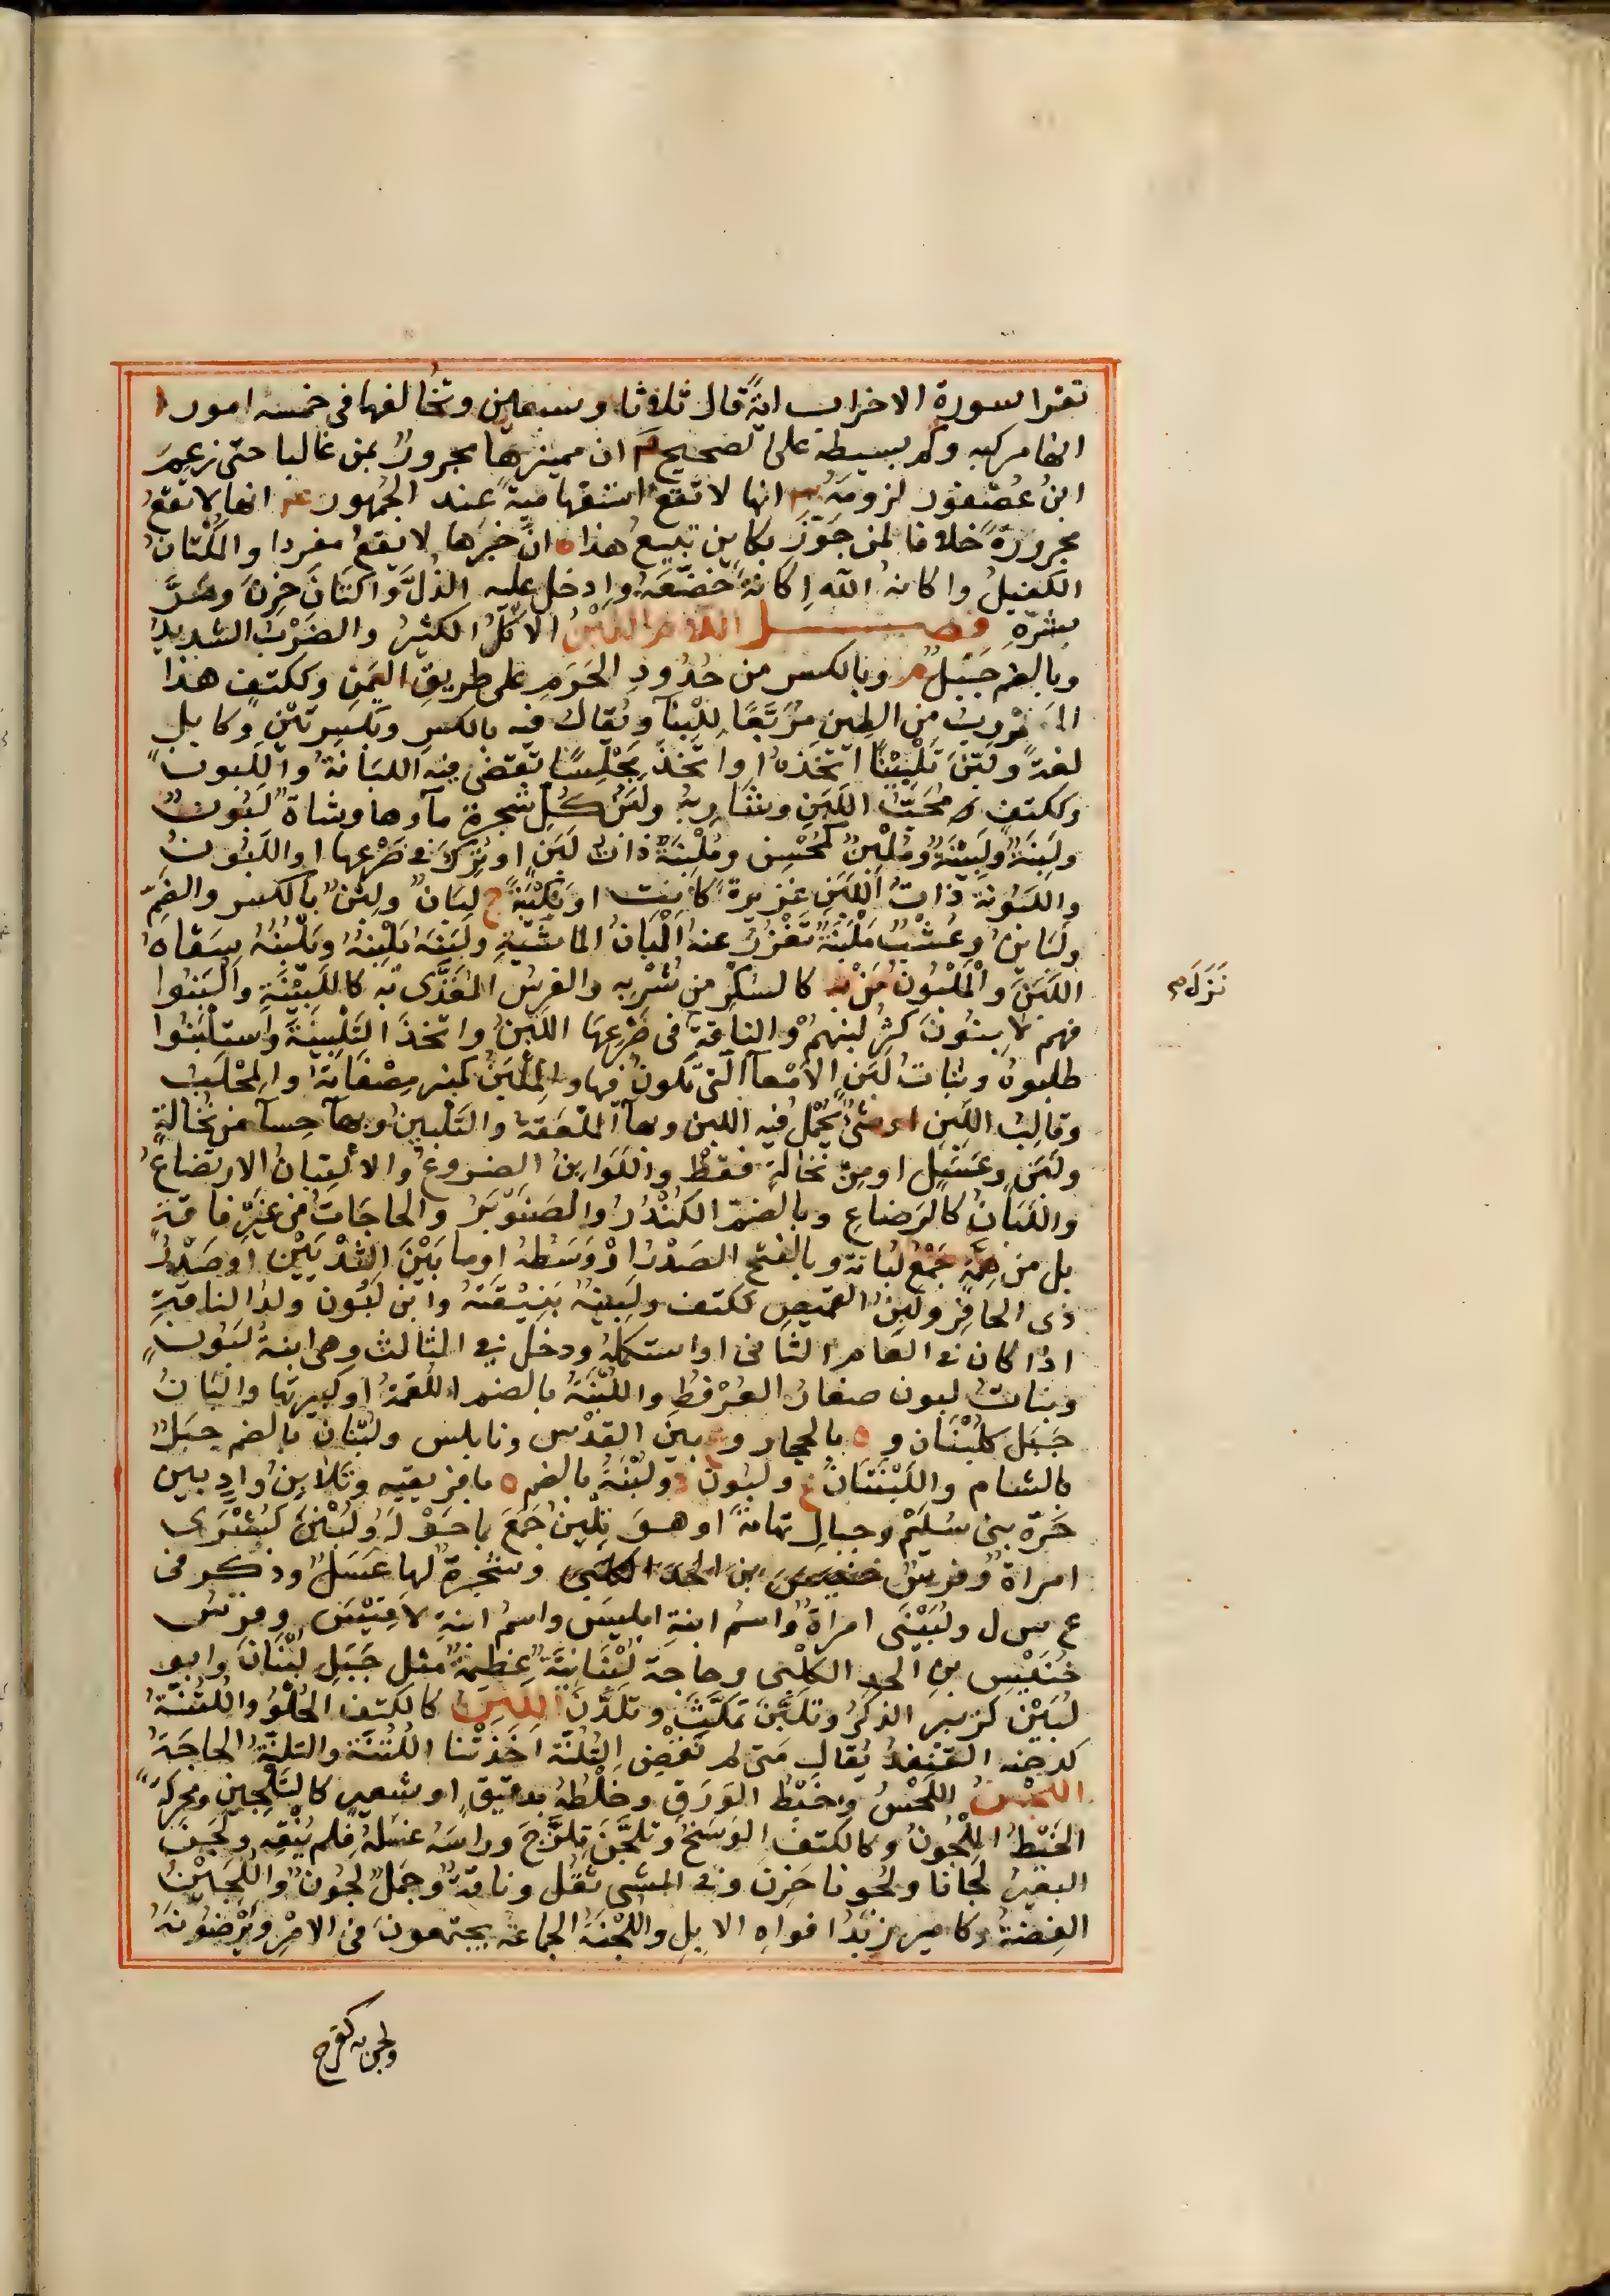 تقرا سورة الاحزاب اية قال ثلاثا وسبعين وتخالفها في خمسة امور ا
انها مركبه وكم بسيطه على الصحيح ٢ ان مميزها مجرور بمن غالبا حتى زعم
ابن عصفور لزومه ٣ انها لا تقع استفهامية عند الجمهور ٤ انها لا تقع
مجرورة خلافا لمن جوز بكاين تبيع هذا ٥ ان خبرها لا يقع مفردا والمكتان
الكفيل واكانه الله اكانة خضعه وادخل عليه الذل واكتان حزن وهو
بشره فصل اللام اللبن الاكل الكثير والضرب الشديد
وبالضم جبل م وبالكسر من حدود الحرم على طريق اليمن وككتف هذا
المضروب من الطين مربعا للبنآ ويقال فيه بالكسر وبكسرتين وكابل
لغة ولبن تلبينا اتخذه او اتخذ مجلسا تقضى فيه اللبانة واللبون
وككتف محب اللبن وشاربه ولبن كل شجرة مآوها وشاة لبون
ولبنة ولبينة وملبن كمحسن وملبنة ذات لبن او ترك في ضرعها او اللبون
واللبونة ذات اللبن غزيرة كانت او بكيئة ج لبان ولبن بالكسر والضم
ولبائن وعشب ملبنة تغزر عنه البان الماشية ولبنه يلبنه ويلبنه سقاه
اللبن والملبون من به كالسكر من شربه والفرس المغذى به كاللبين والبنوا
فهم لابنون كثر لبنهم والناقة في ضرعها اللبن واتخذ التلبينة واستلبنوا
طلبوه وبنات لبن الامعآ التي تكون فيها والملبن كمنبر مصفاة او المحلب
وقالب اللبن او شئ يحمل فيه اللبن وبهآ الملعقة والتلبين وبهآ حسآ من نخالة
ولبن وعسل او من نخالة فقط واللوابن الضروع والالتبان الارتضاع
واللبان كالرضاع وبالضم الكندر والصنوبر والحاجات من غير فاقة
بل من همة جمع لبانة وبالفتح الصدر او وسطه او ما بين الثديين او صدر
ذي الحافر ولبن القميص ككتف ولبينه بنيقته وابن لبون ولد الناقة
اذا كان في العام الثاني او استكمله ودخل في الثالث وهي ابنة لبون
وبنات لبون صغار العرفط واللبنة بالضم اللقمة او كبيرتها والبان
جبل كلبنان و ه بالحجاز و ع بين القدس ونابلس ولبنان بالضم جبل
بالشام واللبنتان ع ولبون د ولبنة بالضم ه بافريقيه وتلابن واد بين
حرة بني سليم وجبال تهامة او هو تلبن جمع بما حوله ولبنى كبشرى
امراة وفرس خنيس بن الحدا الكلبي وشجرة لها عسل وذكر في
ع س ل ولبينى امراة واسم ابنة ابليس واسم ابنة لاقيس وفرس
خنيس بن الحد الكلبي وحاجة لبنانية عظيمة مثل جبل لبنان وابو
لبين كزبير الذكر وتلبن تمكث وتلدن اللتن كالكتف الحلو واللتنة
كدجنه القنفذ يقال متى لم تقض التلنة اخذتنا اللتنة والتلنة الحاجة
اللجن اللحس وخبط الورق وخلطه بدقيق او شعير كالتلجين ومحركة
الخبط الملجون وكالكتف الوسخ وتلجن تلزج وراسه غسله فلم ينقه ولجن
البعير لجانا ولجونا حرن وفي المشي ثقل وناقة وجمل لجون واللجين
الفضة وكامير زبد افواه الابل واللجنة الجماعة يجتمعون في الامر ويرضونه
نزل م
ولجن به كفرح